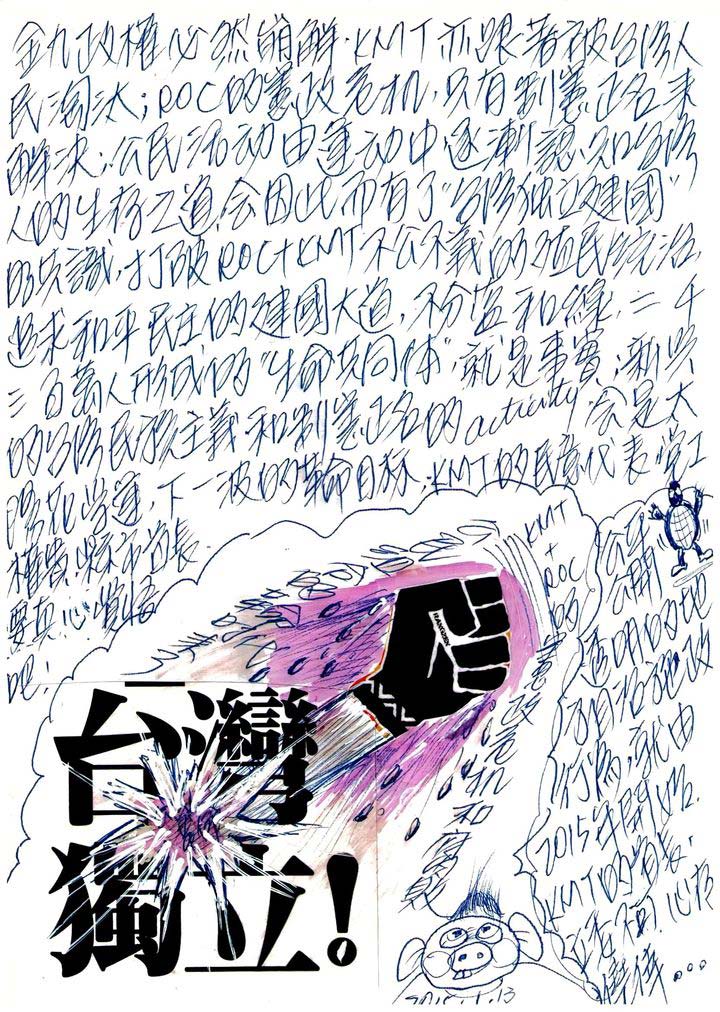 政權必然崩解. KMT亦跟著被台灣人
民淘汰; ROC的憲政危机, 只有制憲正名來
解決. 公民活动由運动中逐漸認知台灣
人的生存之道, 会因此而有了"台灣独立建國"
的共識, 打破ROC+KMT不公不義的殖民統治,
追求和平民主的建國大道, 不分藍和綠, 二千
三百萬人形成的"生命共同体", 就是事實; 新興
的台灣民族主義和制憲正名的activity, 会是太
陽花学運, 下一波的革命目标. KMT的民意代表党工
權貴, 縣市首長
要真心覺悟
吧!
KMT
+
ROC
的
憲政危机和
公平
公開
透明的地
方自治施政
行為, 就由
2015年開始.
KMT的首長,
心存
...
台灣
獨立!
2015.1.13